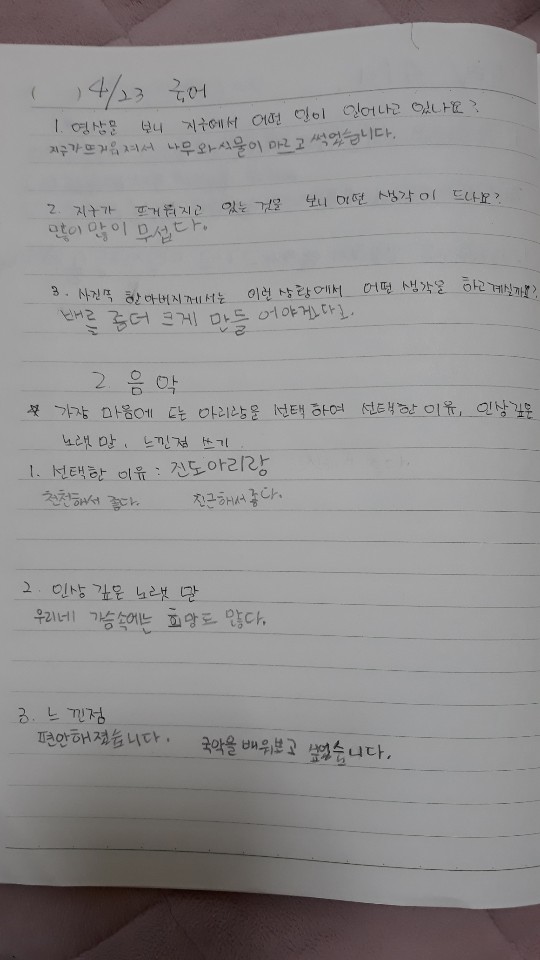 ( ) 4/23 국어
1. 영상을 보니 지구에서 어떤 일이 일어나고 있나요?
지구가 뜨거워져서 나무와 식물이 마르고 썩었습니다.
2. 지구가 뜨거워지고 있는 것을 보니 어떤 생각이 드나요?
많이 많이 무섭다.
3. 사진 속 할아버지께서는 이런 상황에서 어떤 생각을 하고 계실까요?
배를 좀더 크게 만들어야겠다!.
2. 음악
* 가장 마음에 드는 아리랑을 선택하여 선택한 이유, 인상깊은
노랫말, 느낀점 쓰기.
1. 선택한 이유 : 진도아리랑
천천해서 좋다. 친근해서 좋다.
2. 인상 깊은 노랫 말
우리네 가슴속에는 희망도 많다.
3. 느낀점
편안해졌습니다. 국악을 배워보고 싶었습니다.